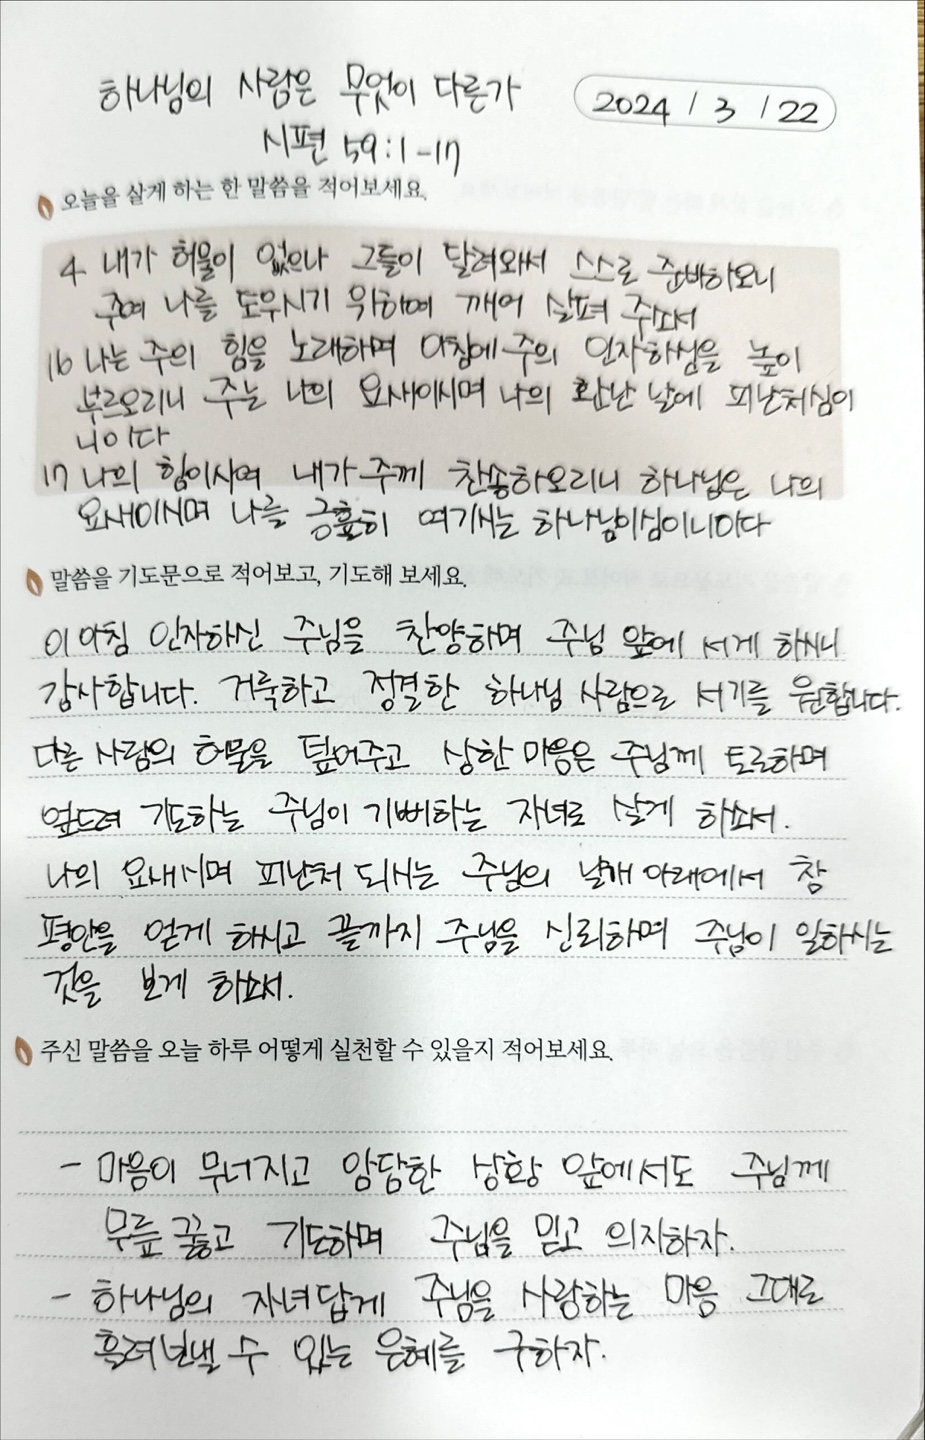 하나님의 사람은 무엇이 다른가
2024 / 3 / 22
시편 59:1-17
오늘을 살게 하는 한 말씀을 적어보세요.
4 내가 허물이 없으나 그들이 달려와서 스스로 준비하오니
주여 나를 도우시기 위하여 깨어 살펴 주소서
16 나는 주의 힘을 노래하며 아침에 주의 인자하심을 높이
부르오리니 주는 나의 요새이시며 나의 환난 날에 피난처심이
니이다
17 나의 힘이시여 내가 주께 찬송하오리니 하나님은 나의
요새이시며 나를 긍휼히 여기시는 하나님이심이니이다
말씀을 기도문으로 적어보고, 기도해 보세요.
이 아침 인자하신 주님을 찬양하며 주님 앞에 서게 하시니
감사합니다. 거룩하고 정결한 하나님 사람으로 서기를 원합니다.
다른 사람의 허물을 덮어주고 상한 마음은 주님께 토로하며
엎드려 기도하는 주님이 기뻐하는 자녀로 살게 하소서.
나의 요새시며 피난처 되시는 주님의 날개 아래에서 참
평안을 얻게 하시고 끝까지 주님을 신뢰하며 주님이 일하시는
것을 보게 하소서.
주신 말씀을 오늘 하루 어떻게 실천할 수 있을지 적어보세요.
- 마음이 무너지고 암담한 상황 앞에서도 주님께
무릎 꿇고 기도하며 주님을 믿고 의지하자.
- 하나님의 자녀답게 주님을 사랑하는 마음 그대로
흘려보낼 수 있는 은혜를 구하자.